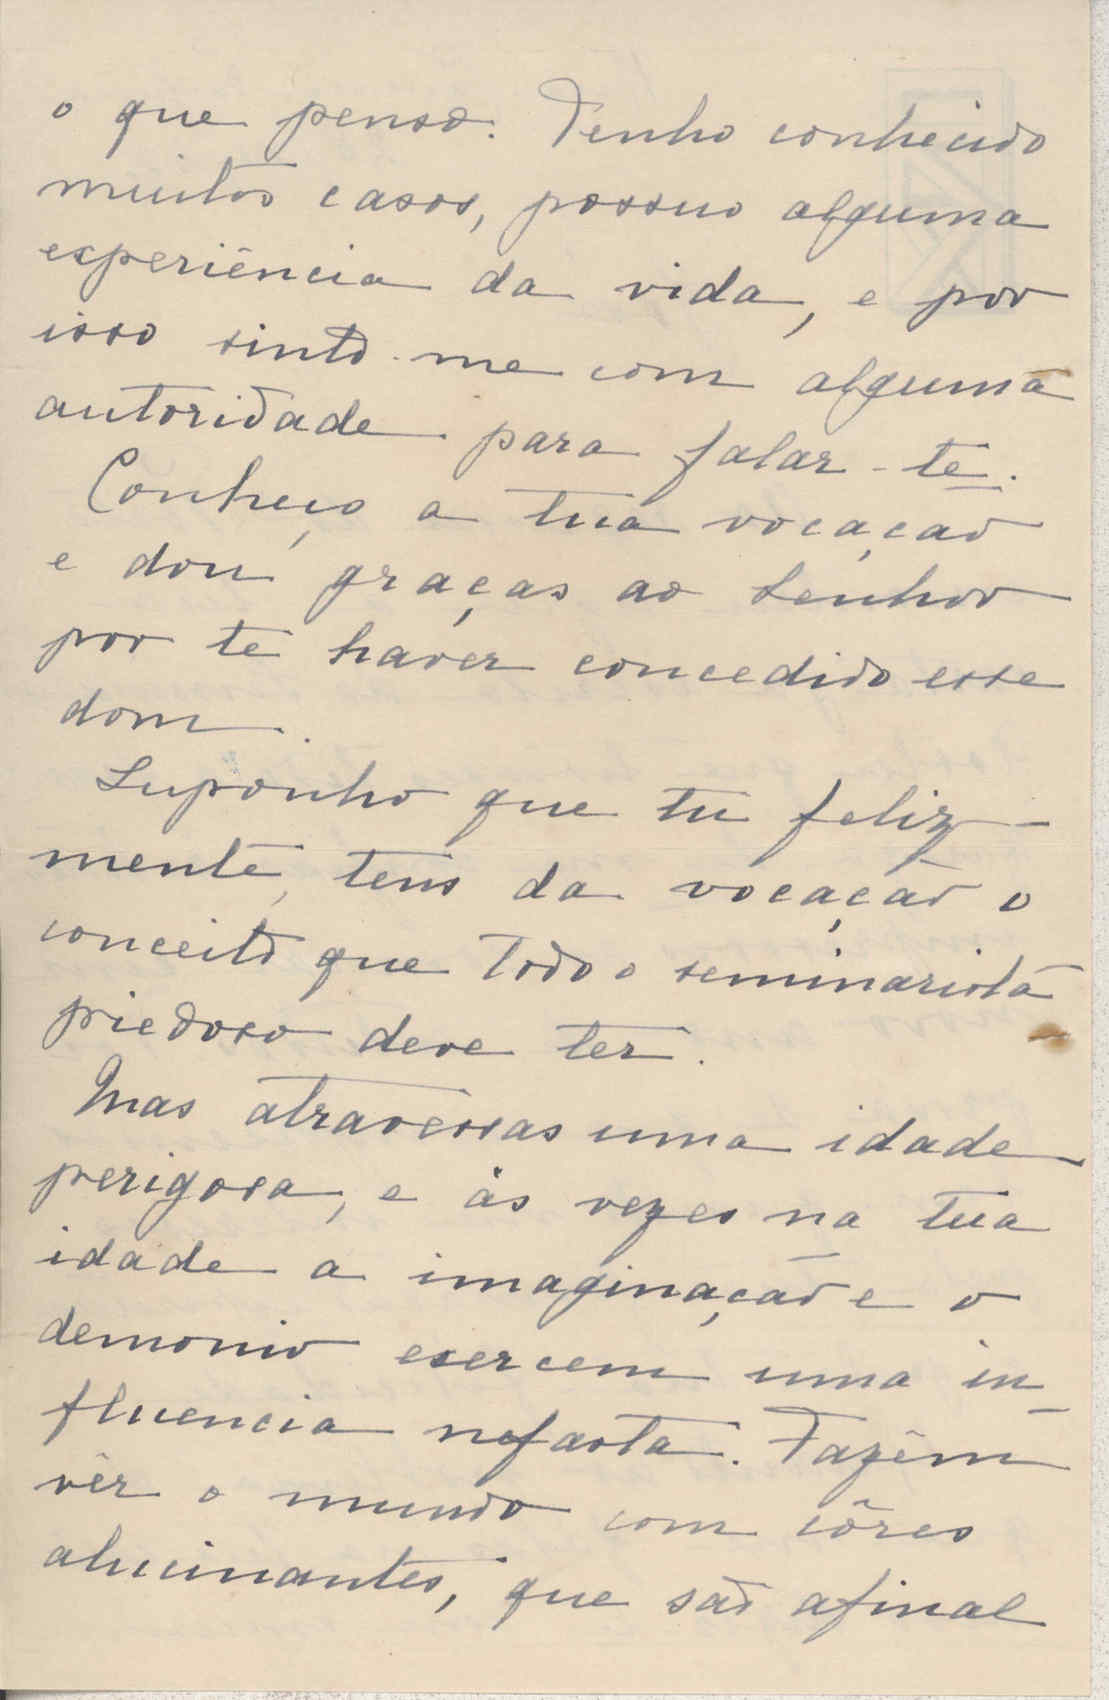 o que penso. Tenho conhecido
muitos casos, possuo alguma
experiência da vida, e por
isso sinto-me com alguma
autoridade para falar-te.
Conheço a tua vocação
e dou graças ao Senhor
por te haver concedido esse
dom.
Suponho que tu feliz-
mente, tens da vocação o
conceito que todo o seminarista
piedoso deve ter.
Mas atravessas uma idade
perigosa, e ás vezes na tua
idade a imaginação e o
demonio exercem uma in-
fluencia nefasta. Fazêm
vêr o mundo com côres
alucinantes, que são afinal